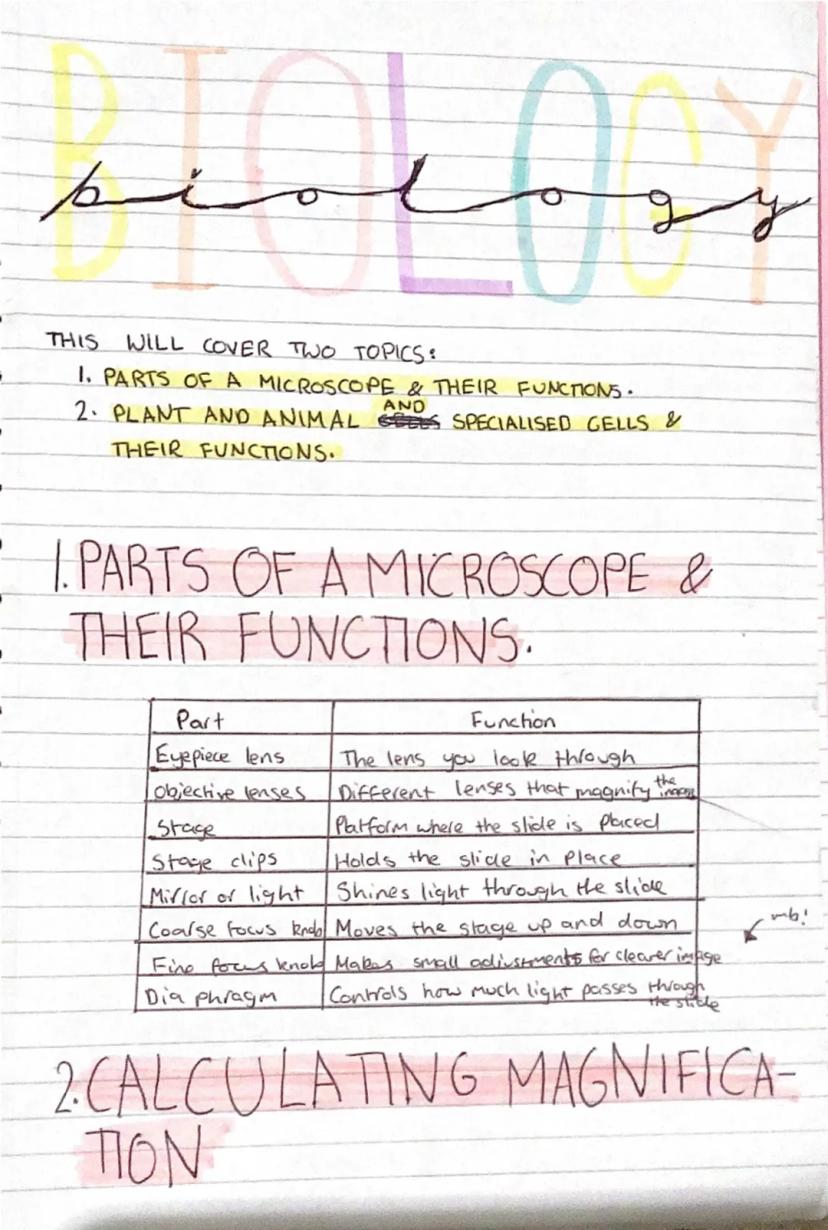 BIOLOGY
biology
THIS WILL COVER TWO TOPICS:
1. PARTS OF A MICROSCOPE & THEIR FUNCTIONS.
2. PLANT AND ANIMAL AND SPECIALISED CELLS &
THEIR FUNCTIONS.
1. PARTS OF A MICROSCOPE &
THEIR FUNCTIONS.
Part Function
Eyepiece lens The lens you look through
Objective lenses Different lenses that magnify the image
Stage Platform where the slide is placed
Stage clips Holds the slide in place
Mirror or light Shines light through the slide
Coarse focus knob Moves the stage up and down
mb!
Fine focus knob Makes small adjustments for clearer image
Diaphragm Controls how much light passes through
the slide
2. CALCULATING MAGNIFICA-
TION